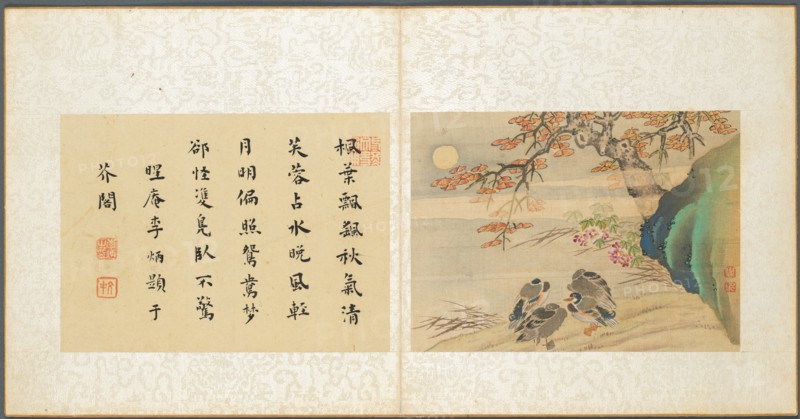 楓葉飄颻秋氣清
芙蓉占水晚風輕
月明偏照鴛鴦梦
郤怪雙鳧臥不驚
庵李炳題于
芥閣
PHOTO12